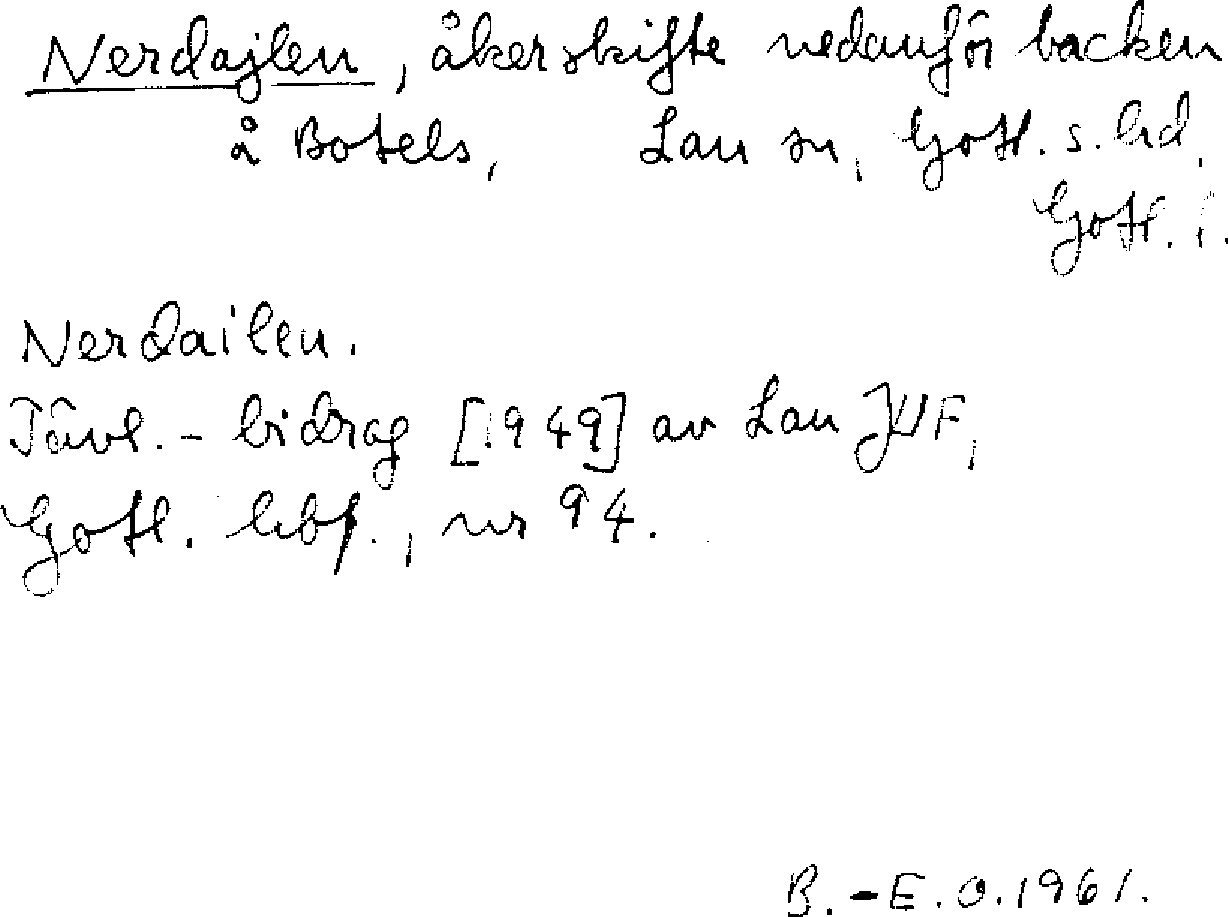 Nerdajlen, åkerskifte nedanför backen
å Botels, Lau sn, Gotl. s. hd,
Gotl. l.
Nerdailen.
Tävl.-bidrag [1949] av Lau JUF,
Gotl. hbf., nr 94.
B.-E. O. 1961.